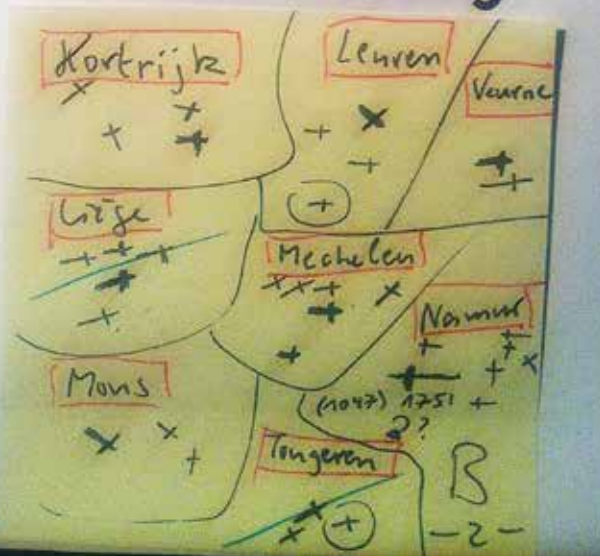 Kortrijk
Leuven
Veurne
Liège
Mechelen
Namur
(1047) 1751
2?
Mons
Tongeren
B
-2-